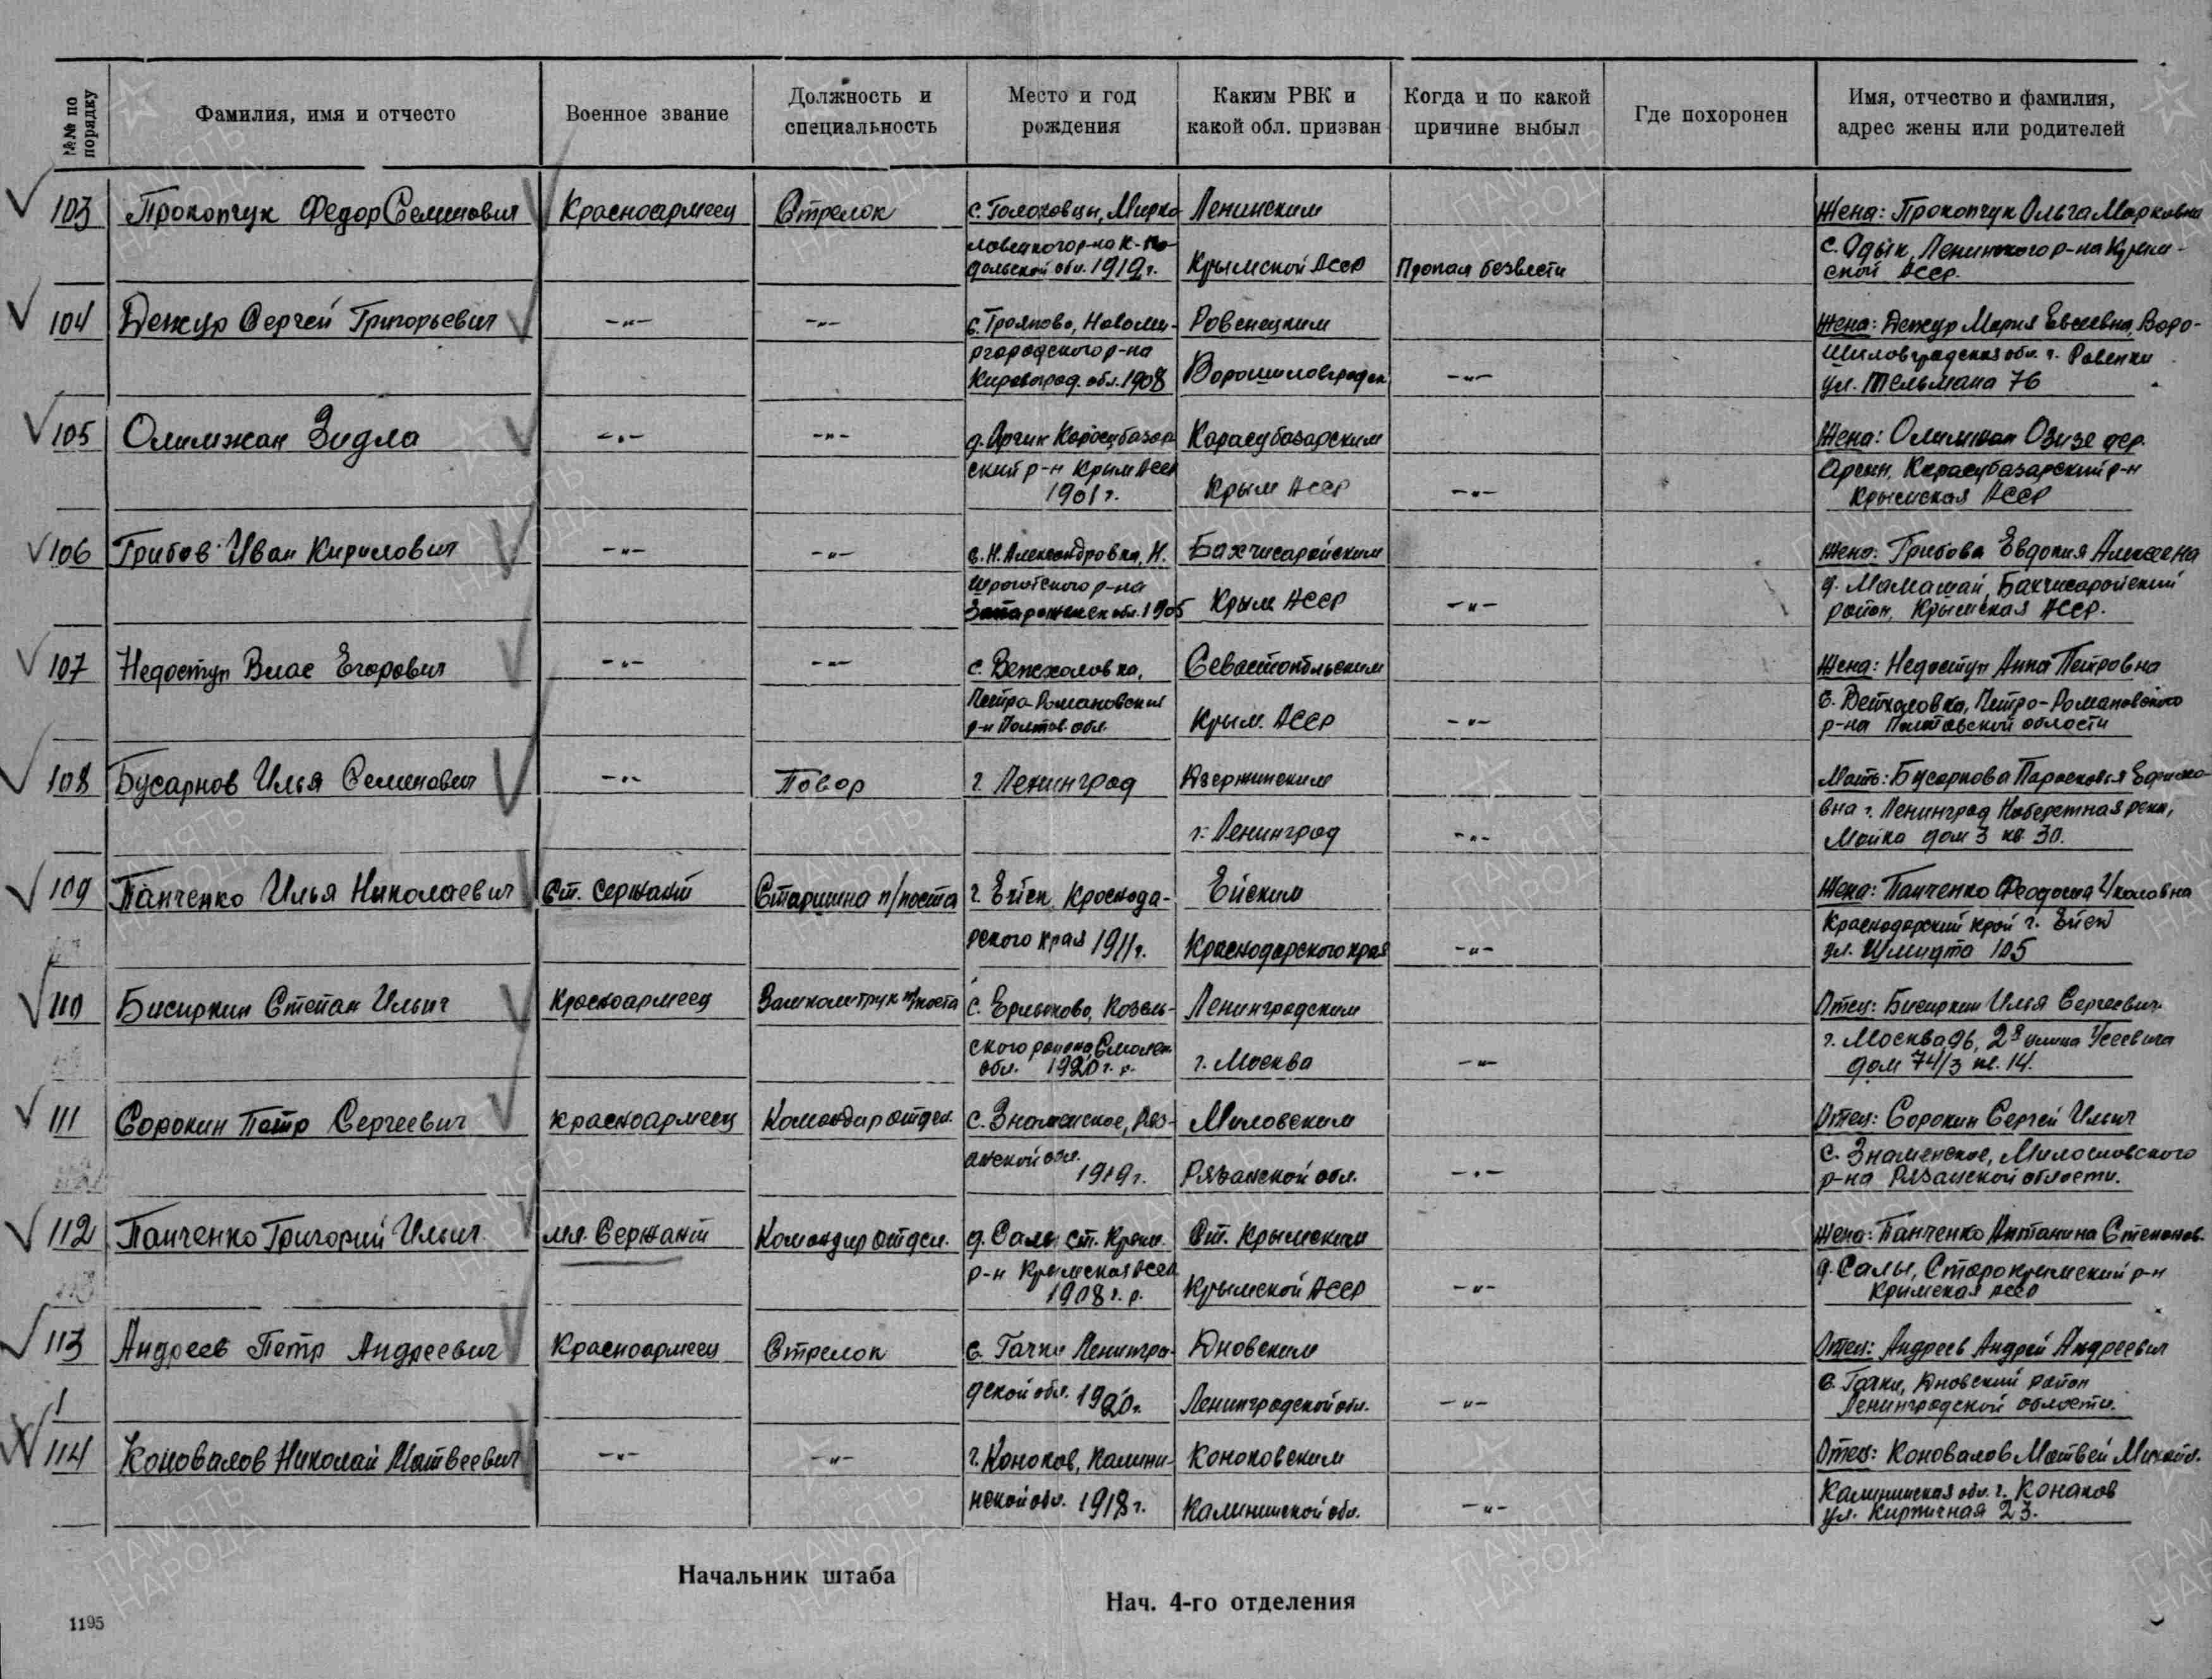 №№ по порядку
Фамилия, имя и отчесто
Военное звание
Должность и специальность
Место и год рождения
Каким РВК и какой обл. призван
Когда и по какой причине выбыл
Где похоронен
Имя, отчество и фамилия, адрес жены или родителей
103 Прокопчук Федор Семенович Красноармеец Стрелок с. Голоховцы, Мирко- Ленинским Жена: Прокопчук Ольга Марковна
ловецкого р-на К-По- с. Адык, Ленинского р-на Крым-
дольской обл. 1919г. Крымской АССР Пропал безвести ской АССР.
104 Дежур Сергей Григорьевич -"- -"- с. Трояново, Новоми- Ровенецким Жена: Дежур Мария Евсеевна, Воро-
ргородского р-на шиловградская обл. г. Ровенки
Кировоград. обл. 1908 Ворошиловградск -"- ул. Тельмана 76
105 Олимжан Зидла -"- -"- д. Аргин Карасубазар- Карасубазарским Жена: Олимжан Озизе дер.
ский р-н Крым АССР Аргин, Карасубазарский р-н
1901 г. Крым АССР -"- Крымская АССР
106 Грибов Иван Кирилович -"- -"- с. Н. Александровка, Н. Бахчисарайским Жена: Грибова Евдокия Алексеевна
д. Мамашай, Бахчисарайский
Запорожск обл. 1905 Крым АССР -"- район, Крымская АССР.
107 Недоступ Влас Егорович -"- -"- с. Севастопольским Жена: Недоступ Анна Петровна
Петро-Романовский с. Петро-Романовского
р-н Полтов. обл. Крым. АССР -"- р-на Полтавской области
108 Бусарнов Илья Семенович -"- Повар г. Ленинград Дзержинским Мать: Бусарнова Парасковья Ефимо-
вна г. Ленинград Набережная реки,
г. Ленинград -"- Мойка дом 3 кв. 30.
109 Панченко Илья Николаевич Ст. сержант Старшина п/поста г. Ейск Краснода- Ейским Жена: Панченко Феодосия
Краснодарский край г. Ейск
рского края 1911г. Краснодарского края -"- ул. Шмидта 105
110 Бисиркин Степан Ильич Красноармеец Замкомитрук п/поста с. Козель- Ленинградским Отец: Бисиркин Илья Сергеевич
ского района, Смолен. г. Москва 96, 2я улица Усиевича
обл. 1920 г. р. г. Москва -"- дом 74/3 кв. 14.
111 Сорокин Петр Сергеевич красноармеец Командир отдел. с. Знаменское, Ряз- Миловским Отец: Сорокин Сергей Ильич
анской обл. с. Знаменское, Милославского
1919 г. Рязанской обл. -"- р-на Рязанской области.
112 Панченко Григорий Ильич мл. Сержант Командир отдел. д. Салы ст. Крым. Ст. Крымским Жена: Панченко Антанина Степонов.
р-н Крымская АССР д. Салы, Старокрымский р-н
1908 г. р. Крымской АССР -"- Крымская АССР
113 Андреев Петр Андреевич Красноармеец Стрелок с. Гачки Ленингра- Дновским Отец: Андреев Андрей Андреевич
с. Гачки, Дновский район
дской обл. 1920г. Ленинградской обл. -"- Ленинградской области.
114 Коновалов Николай Матвеевич -"- -"- г. Конаков, Калини- Конаковским Отец: Коновалов Матвей Михайл.
Калининская обл. г. Конаков
нской обл. 1918 г. Калининской обл. -"- ул. Кирпичная 23.
Начальник штаба
Нач. 4-го отделения
1195
ПАМЯТЬ НАРОДА